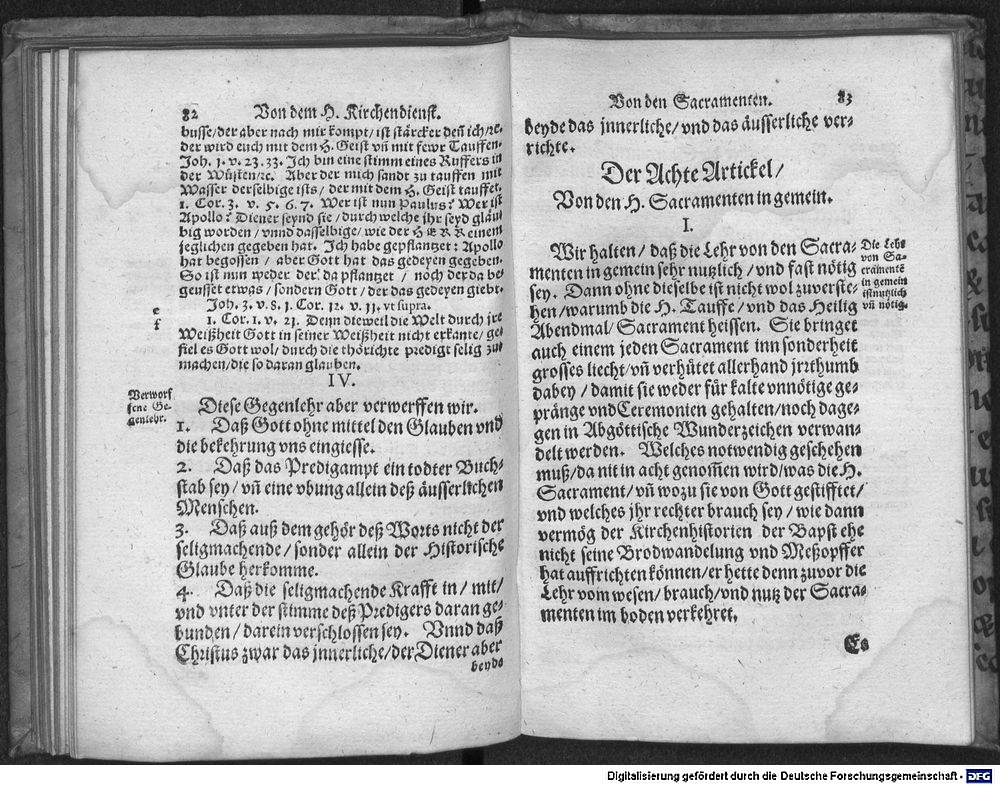 82 Von dem H. Kirchendienst.
busse/der aber nach mir kompt/ist stärcker deñ ich/ꝛc.
der wird euch mit dem H. Geist vñ mit fewr Tauffen.
Joh. 1. v. 23. 33. Ich bin eine stimm eines Ruffers in
der Wüsten/ꝛc. Aber der mich sandt zu tauffen mit
Wasser derselbige ists/der mit dem H. Geist tauffet.
1. Cor. 3. v. 5. 6. 7. Wer ist nun Paulus? Wer ist
Apollo? Diener seynd sie/durch welche jhr seyd gläu
big worden/vnnd dasselbige/wie der HERR einem
jeglichen gegeben hat. Ich habe gepflantzet: Apollo
hat begossen/aber Gott hat das gedeyen gegeben.
So ist nun weder der/da pflantzet/noch der da be-
geusset etwas/sondern Gott/der das gedeyen giebt.
Joh. 3. v. 8. 1. Cor. 12. v. 11. vt supra.
e
f
1. Cor. 1. v. 21. Denn dieweil die Welt durch jre
Weißheit Gott in seiner Weißheit nicht erkante/ge-
fiel es Gott wol/durch die thörichte predigt selig zu
machen/die so daran glauben.
IV.
Verworf
fene Ge-
genlehr.
Diese Gegenlehr aber verwerffen wir.
1. Daß Gott ohne mittel den Glauben vnd
die bekehrung vns eingiesse.
2. Daß das Predigampt ein todter Buch-
stab sey/vñ eine vbung allein deß äusserlichen
Menschen.
3. Daß auß dem gehör deß Worts nicht der
seligmachende/sonder allein der Historische
Glaube herkomme.
4. Daß die seligmachende Krafft in/mit/
vnd vnter der stimme deß Predigers daran ge-
bunden/darein verschlossen sey. Vnnd daß
Christus zwar das jnnerliche/der Diener aber
beyde
Von den Sacramenten. 83
beyde das jnnerliche/vnd das äusserliche ver-
richte.
Der Achte Artickel/
Von den H. Sacramenten in gemein.
I.
Wir halten/daß die Lehr von den Sacra-
menten in gemein sehr nutzlich/vnd fast nötig
sey. Dann ohne dieselbe ist nicht wol zuverste-
hen/warumb die H. Tauffe/vnd das Heilig
Abendmal/Sacrament heissen. Sie bringet
auch einem jeden Sacrament inn sonderheit
grosses liecht/vñ verhütet allerhand jrrthumb
dabey/damit sie weder für kalte vnnötige ge-
pränge vnd Ceremonien gehalten/noch dage-
gen in Abgöttische Wunderzeichen verwan-
delt werden. Welches notwendig geschehen
muß/da nit in acht genom̃en wird/was die H.
Sacrament/vñ wozu sie von Gott gestifftet/
vnd welches jhr rechter brauch sey/wie dann
vermög der Kirchenhistorien der Bapst ehe
nicht seine Brodwandelung vnd Meßopffer
hat auffrichten können/er hette denn zuvor die
Lehr vom wesen/brauch/vnd nutz der Sacra-
menten im boden verkehret.
Die Lehr
von Sa-
cramentẽ
in gemein
ist nutzlich
vñ nötig.
Es
Digitalisierung gefördert durch die Deutsche Forschungsgemeinschaft - DFG